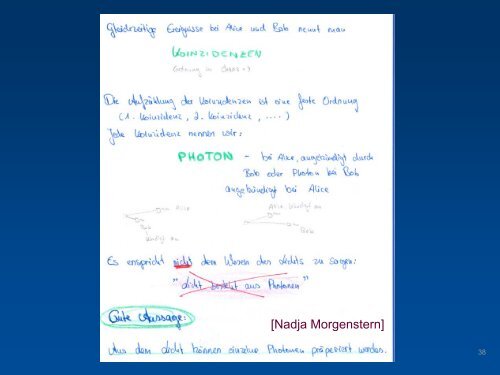 Gleichzeitige Ereignisse bei Alice und Bob nennt man
KOINZIDENZEN
Ordnung in
Die Aufzählung der Koinzidenzen ist eine feste Ordnung
(1. Koinzidenz, 2. Koinzidenz, ....)
Jede Koinzidenz nennen wir:
PHOTON - bei Alice, angekündigt durch
Bob oder Photon bei Bob
angekündigt bei Alice
Alice
Bob
kündigt an
Alice kündigt an
Bob
Es entspricht nicht dem Wesen des Lichts zu sagen:
"Licht besteht aus Photonen"
Gute Aussage:
[Nadja Morgenstern]
Aus dem Licht können einzelne Photonen präpariert werden.
38